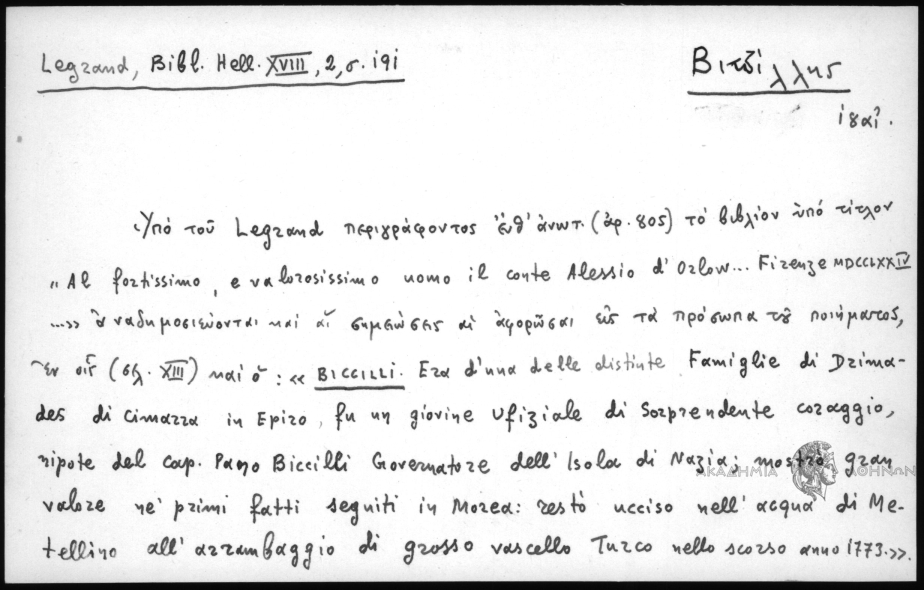 Legrand, Bibl. Hell. XVIII, 2, σ. 191
Βιτζίλλης
Ὑπὸ τοῦ Legrand περιγράφοντος ἔνθ' ἀνωτ. (ἀρ. 805) τὸ βιβλίον ὑπὸ τίτλον
"Al fortissimo, e valorosissimo uomo il conte Alessio d'Orlow... Firenze MDCCLXXIV
...» ἀναδημοσιεύονται καὶ αἱ σημειώσεις αἱ ἀφορῶσαι εἰς τὰ πρόσωπα τοῦ ποιήματος,
ἐν οἷς (σλ. XIII) καὶ ὁ: «BICCILLI. Era d'una delle distinte Famiglie di Drima-
des di Cimarra in Epiro, fu un giovine Ufiziale di sorprendente coraggio,
nipote del cap. Pano Biccilli Governatore dell'Isola di Naxia; mostrò gran
valore ne' primi fatti seguiti in Morea: restò ucciso nell'acqua di Me-
tellino all'arrambaggio di grosso vascello Turco nello scorso anno 1773.».
ΑΚΑΔΗΜΙΑ ΑΘΗΝΩΝ